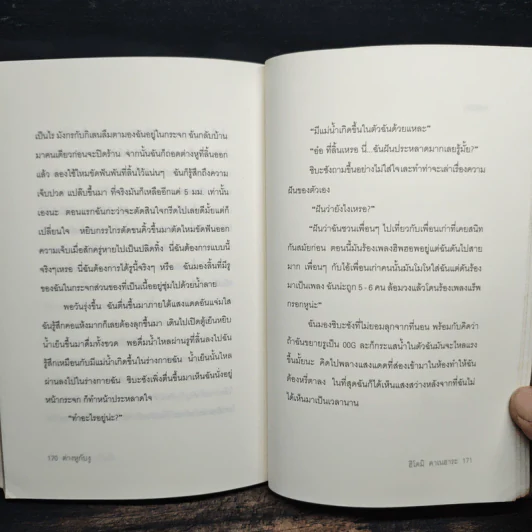 เป็นไร มังกรกับกิเลนลืมตามองฉันอยู่ในกระจก ฉันกลับบ้าน
มาคนเดียวก่อนจะปิดร้าน จากนั้นฉันก็ถอดต่างหูที่ลิ้นออก
แล้ว ลองใช้ไหมขัดฟันพันที่ลิ้นไว้แน่นๆ ฉันก็รู้สึกถึงความ
เจ็บปวด แปลบขึ้นมา ที่จริงมันก็เหลืออีกแค่ 5 มม. เท่านั้น
เองนะ ตอนแรกฉันกะว่าจะตัดสินใจกรีดไปเลยดีมั้ยแต่ก็
เปลี่ยนใจ หยิบกรรไกรตัดขนคิ้วขึ้นมาตัดไหมขัดฟันออก
ความเจ็บเมื่อสักครู่หายไปเป็นปลิดทิ้ง นี่ฉันต้องการแบบนี้
จริงๆเหรอ นี่ฉันต้องการได้รูนี้จริงๆ หรือ ฉันมองลิ้นที่มีรู
ของฉันในกระจกส่วนของที่เป็นเนื้ออยู่ชุ่มไปด้วยน้ำลาย
พอวันรุ่งขึ้น ฉันตื่นขึ้นมาภายใต้แสงแดดอันแจ่มใส
ฉันรู้สึกคอแห้งมากก็เลยต้องลุกขึ้นมา เดินไปเปิดตู้เย็นหยิบ
น้ำเย็นขึ้นมาดื่มทั้งขวด พอดื่มน้ำไหลผ่านรูที่ลิ้นลงไปฉัน
รู้สึกเหมือนกับมีแม่น้ำเกิดขึ้นในร่างกายฉัน น้ำเย็นนั้นไหล
ผ่านลงไปในร่างกายฉัน ชิบะซังเพิ่งตื่นขึ้นมาเห็นฉันนั่งอยู่
หน้ากระจก ก็ทำหน้าประหลาดใจ
“ทำอะไรอยู่น่ะ?”
170 ต่างหูกับงู
“มีแม่น้ำเกิดขึ้นในตัวฉันด้วยแหละ”
“อ๋อ ที่ลิ้นเหรอ นี่...ฉันฝันประหลาดมากเลยรู้มั้ย?”
ชิบะซังถามขึ้นอย่างไม่ใส่ใจเสะทำท่าจะเล่าเรื่องความ
ฝันของตัวเอง
“ฝันว่ายังไงเหรอ?”
“ฝันว่าฉันชวนเพื่อนๆ ไปเที่ยวกับเพื่อนเก่าที่เคยสนิท
กันสมัยก่อน ตอนนี้มันร้องเพลงฮิพฮอพอยู่แต่ฉันดันไปสาย
มาก เพื่อนๆ กับไอ้เพื่อนเก่าคนนั้นมันโมโหใส่ฉันแต่ดันร้อง
มาเป็นเพลง ฉันน่ะถูก 5 - 6 คน ล้อมวงแล้วโดนร้องเพลงแร็พ
กรอกหูน่ะ”
ฉันมองชิบะซังที่ไม่ยอมลุกจากที่นอน พร้อมกับคิดว่า
ถ้าฉันขยายรูเป็น 00G ละก็กระแสน้ำในตัวฉันมันจะไหลแรง
ขึ้นมั้ยนะ คิดไปพลางแสงแดดที่ส่องเข้ามาในห้องทำให้ฉัน
ต้องหรี่ตาลง ในที่สุดฉันก็ได้เห็นแสงสว่างหลังจากที่ฉันไม่
ได้เห็นมาเป็นเวลานาน
ฮิโตมิ คาเนฮาระ 171